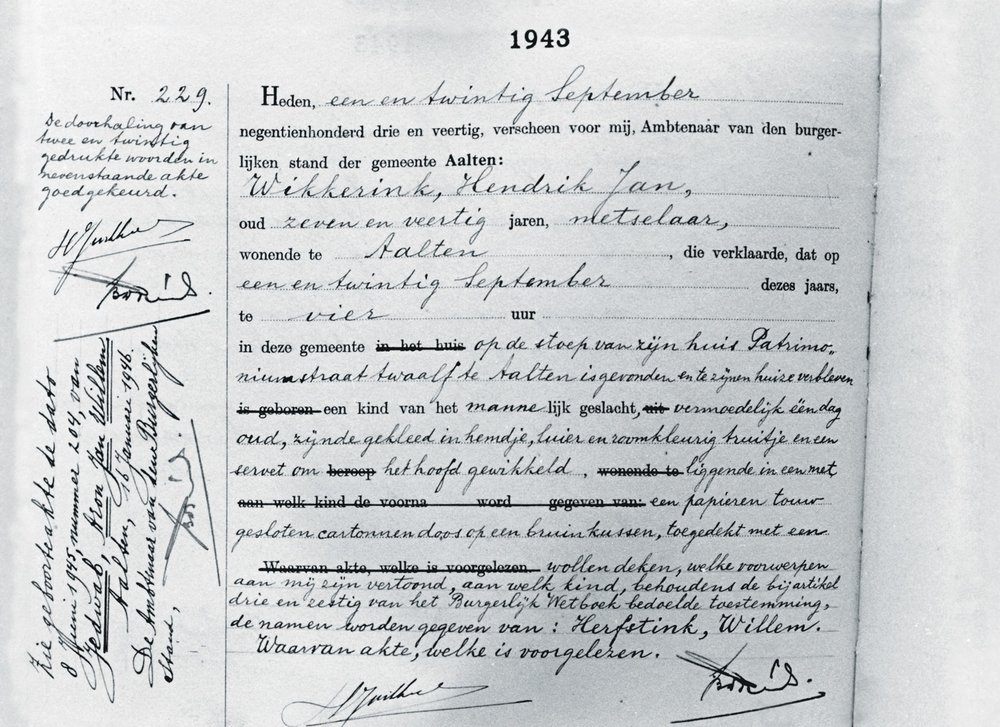 1943
Nr. 229.
De doorhaling van
twee en twintig
gedrukte woorden in
nevenstaande akte
goedgekeurd.
Heden, een en twintig September
negentienhonderd drie en veertig, verscheen voor mij, Ambtenaar van den burger-
lijken stand der gemeente Aalten:
Wikkerink, Hendrik Jan,
oud zeven en veertig jaren, metselaar,
wonende te Aalten, die verklaarde, dat op
een en twintig September dezes jaars,
te vier uur
in deze gemeente in het huis op de stoep van zijn huis Patrimo„
niumstraat twaalf te Aalten is gevonden en te zijnen huize verbleven
is geboren een kind van het mannelijk geslacht, uit vermoedelijk één dag
oud, zijnde gekleed in hemdje, luier en roomkleurig truitje en een
servet om beroep het hoofd gewikkeld, wonende te liggende in een met
aan welk kind de voorna word gegeven van: een papieren touw
gesloten cartonnen doos op een bruin kussen, toegedekt met een
Waarvan akte, welke is voorgelezen. wollen deken, welke voorwerpen
aan mij zijn vertoond, aan welk kind, behoudens de bij artikel
drie en zestig van het Burgerlijk Wetboek bedoelde toestemming,
de namen worden gegeven van: Herfstink, Willem.
Waarvan akte, welke is voorgelezen.
Zie geboorteakte de dato
8 Juni 1945, nummer 204, van
Jedwab, Aron Jan Willem
Aalten, 16 Januari 1946.
De Ambtenaar van den Burgerlijken
Stand,